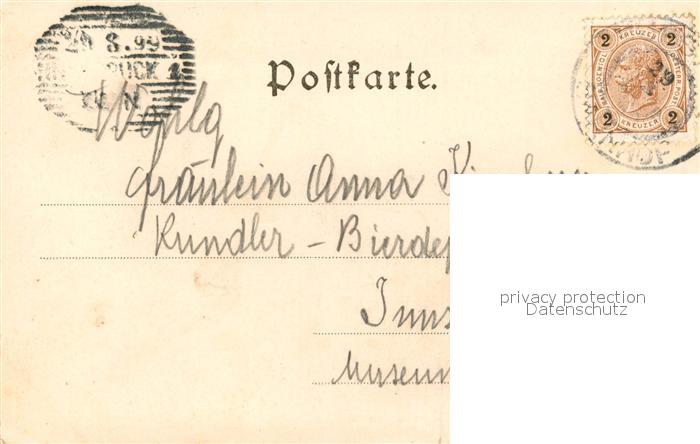 29 8.99
BRUCK 1
2 KREUZER 2
2 KREUZER 2
Postkarte.
Wohlg
Fräulein Anna
Kundler - Bierdep
Inns
Museum
privacy protection
Datenschutz